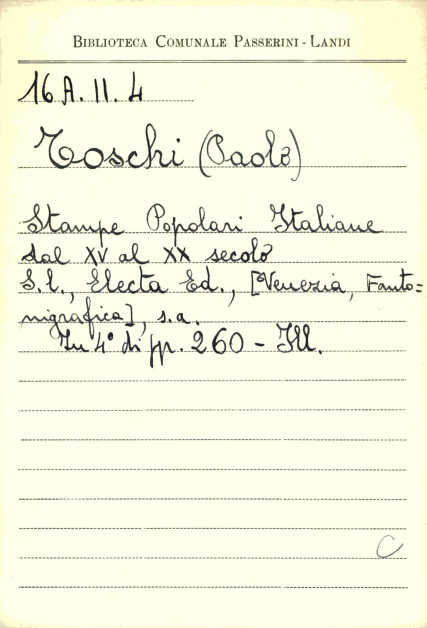 BIBLIOTECA COMUNALE PASSERINI - LANDI
16 A. II. 4
Toschi (Paolo)
Stampe Popolari Italiane
dal XV al XX secolo
S. l., Electa Ed., [Venezia, Fanto=
nigrafica], s. a.
In 4° di pp. 260 - Ill.
C